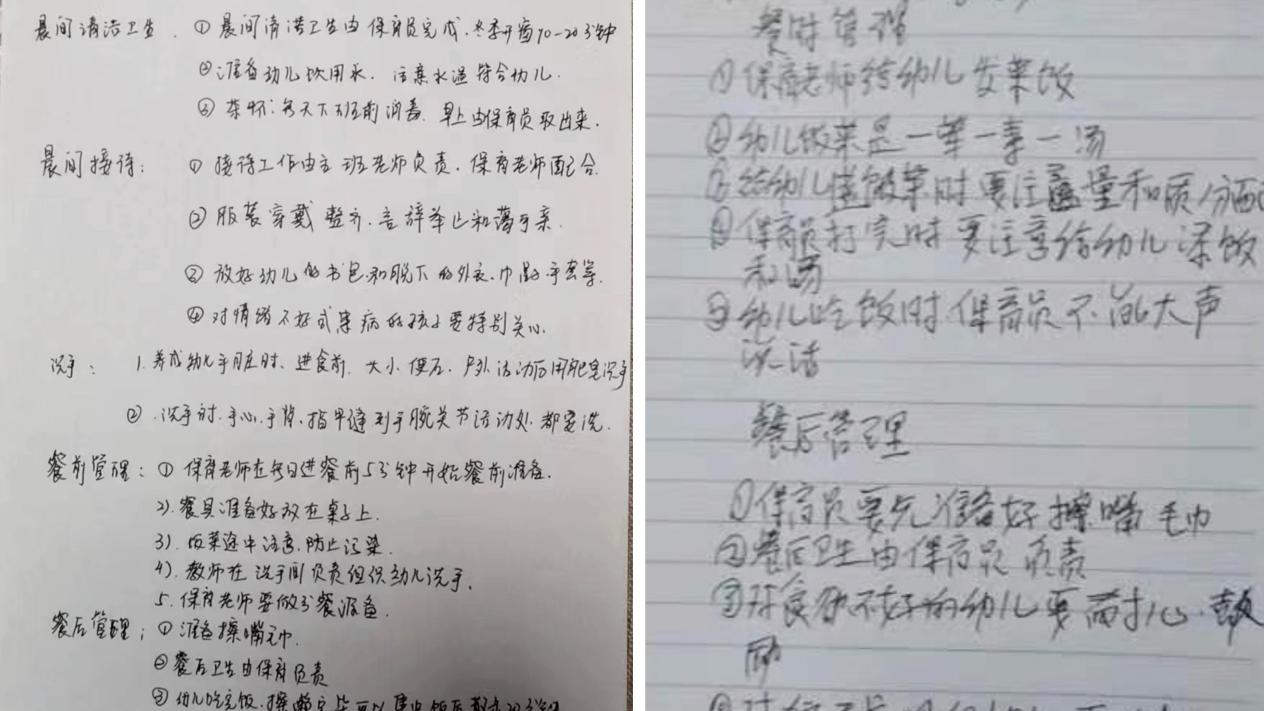 晨间清洁卫生. ①晨间清洁卫生由保育员完成.冬季开窗10-20分钟
②准备幼儿饮用水. 注意水温符合幼儿.
③茶杯:每天下班前消毒.早上由保育员取出来.
晨间接待: ①接待工作由主班老师负责.保育老师配合.
②服装穿戴整齐.言辞举止和蔼可亲.
②放好幼儿的书包和脱下的外衣.巾帽.手套等.
④对情绪不好或患病的孩子要特别关心.
洗手: 1.养成幼儿手脏时、进食前.大小便后.户外活动后用肥皂洗手
②.洗手时.手心.手背.指甲缝到手腕关节活动处.都要洗.
餐前管理:①保育老师在每日进餐前5分钟开始餐前准备.
2).餐具准备好放在桌子上.
3).饭菜途中注意.防止污染.
4).教师在洗手间负责组织幼儿洗手.
5.保育老师要做分餐准备.
餐后管理:①准备擦嘴巾.
②餐后卫生由保育负责
③幼儿吃完饭.擦嘴
餐时管理
①保育老师给幼儿发菜饭
②幼儿饭菜是一荤一素一汤
给幼儿盛饭菜时要注意量和质分配
④保育员打完时要注意给幼儿添饭
和汤
⑤幼儿吃饭时保育员不能大声
说话
餐后管理
①保育员要先准备好擦嘴毛巾
②餐后卫生由保育员负责
③对食欲不好的幼儿要耐心.鼓
励